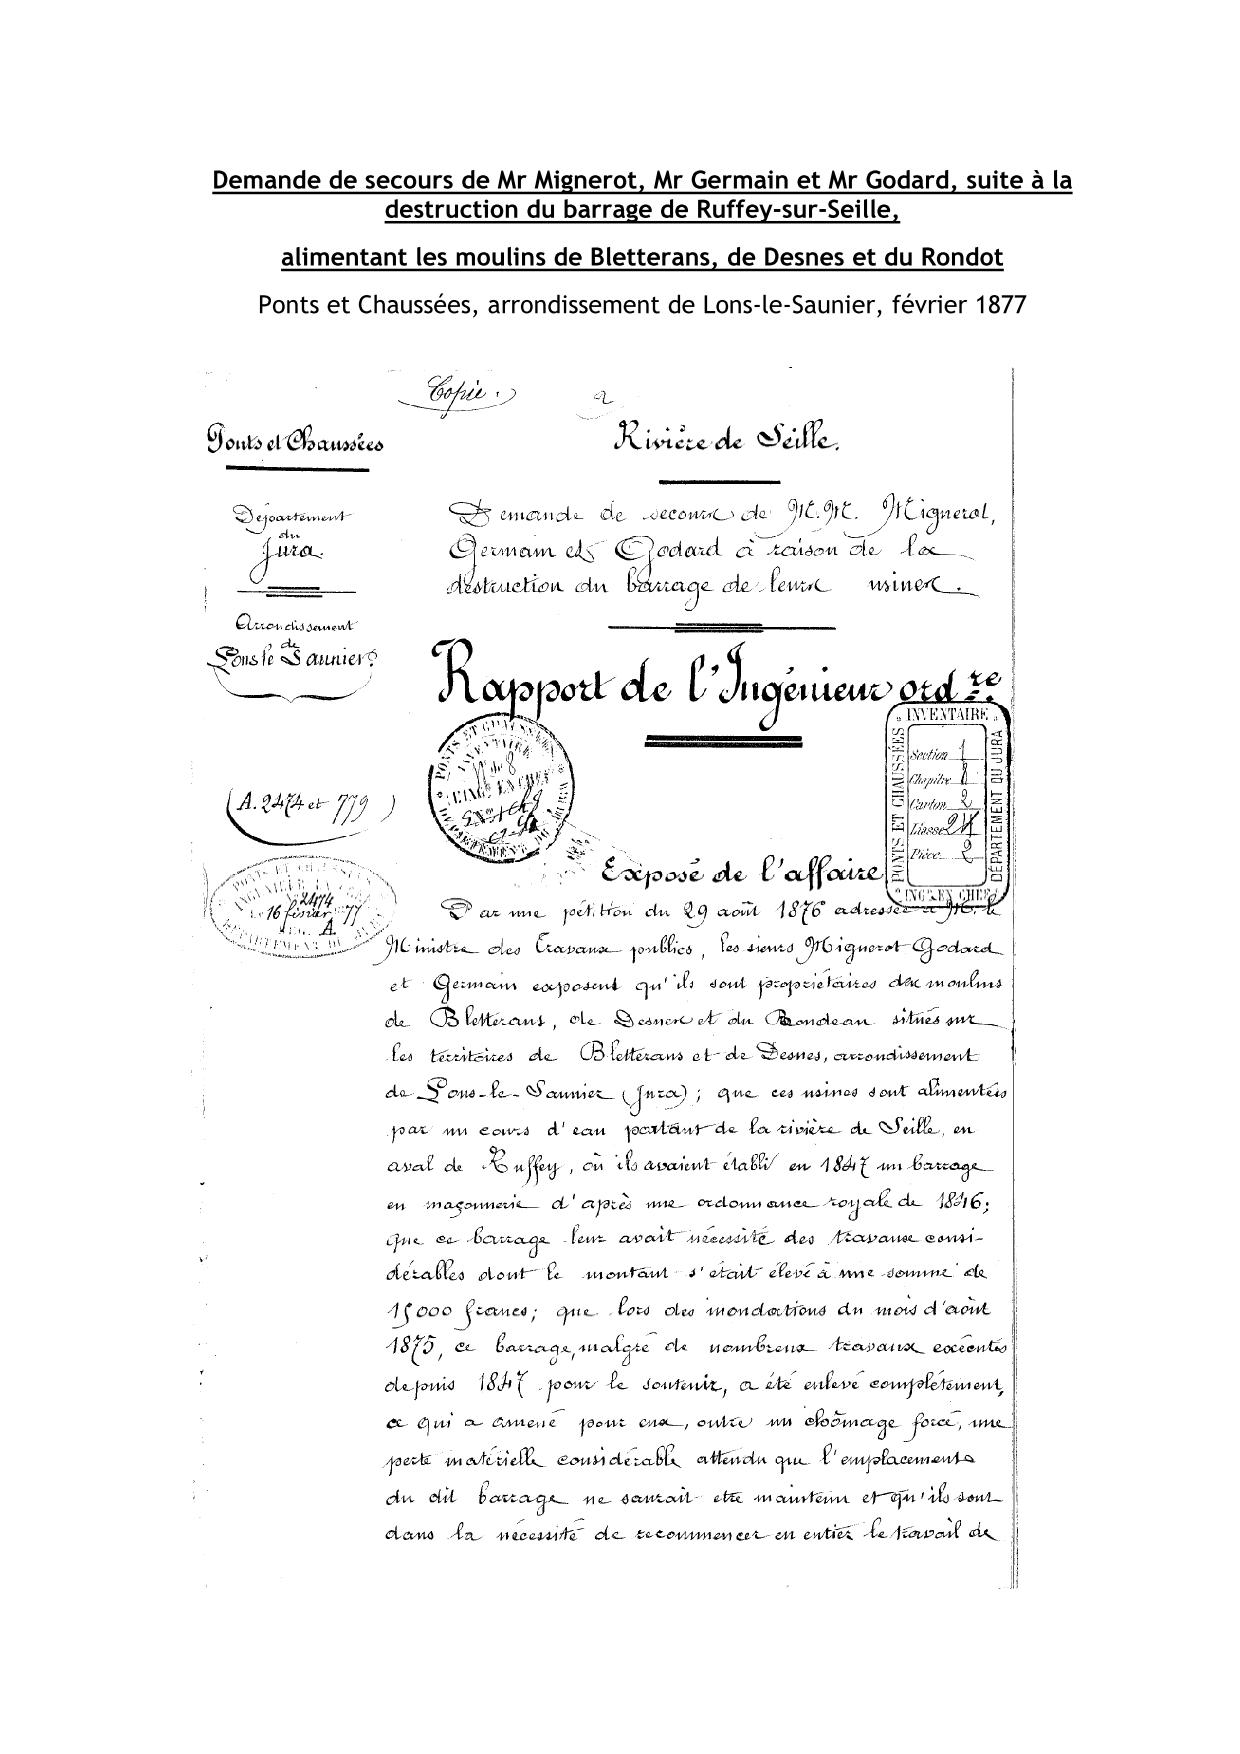 Demande de secours de Mr Mignerot, Mr Germain et Mr Godard, suite à la
destruction du barrage de Ruffey-sur-Seille,
alimentant les moulins de Bletterans, de Desnes et du Rondot
Ponts et Chaussées, arrondissement de Lons-le-Saunier, février 1877
Copie.
Ponts et Chaussées
Département
du
Jura.
Arrondissement
de
Lons le Saunier
(A. 2474 et 779)
Rivière de Seille.
Demande de secours de M.M. Mignerot,
Germain et Godard à raison de la
destruction du barrage de leurs usines.
Rapport de l'Ingénieur ord.re
PONTS ET CHAUSSÉES
INVENTAIRE
N° de 8
L'INGR EN CHEF
DÉPARTEMENT DU JURA
INVENTAIRE
PONTS ET CHAUSSÉES
DÉPARTEMENT DU JURA
Section 1
Chapitre 8
Carton 2
Liasse 24
Pièce 2
INGR EN CHEF
PONTS ET CHAUSSÉES
N° 2474
Le 16 février 77
REG. A.
DÉPARTEMENT DU JURA
Exposé de l'affaire
Par une pétition du 29 août 1876 adressée à M. le
Ministre des Travaux publics, les sieurs Mignerot Godard
et Germain exposent qu'ils sont propriétaires des moulins
de Bletterans, de Desnes et du Rondeau situés sur
les térritoires de Bletterans et de Desnes, arrondissement
de Lons-le-Saunier (Jura) ; que ces usines sont alimentées
par un cours d'eau partant de la rivière de Seille, en
aval de Ruffey, où ils avaient établi en 1847 un barrage
en maçonnerie d'après une ordonnance royale de 1846;
que ce barrage leur avait nécessité des travaux consi-
dérables dont le montant s'était élevé à une somme de
15000 francs; que lors des inondations du mois d'août
1875, ce barrage, malgré de nombreux travaux exécutés
depuis 1847 pour le soutenir, a été enlevé complètement,
ce qui a amené pour eux, outre un chômage forcé, une
perte matérielle considérable attendu que l'emplacement
du dit barrage ne saurait etre maintenu et qu'ils sont
dans la nécessité de recommencer en entier le travail de